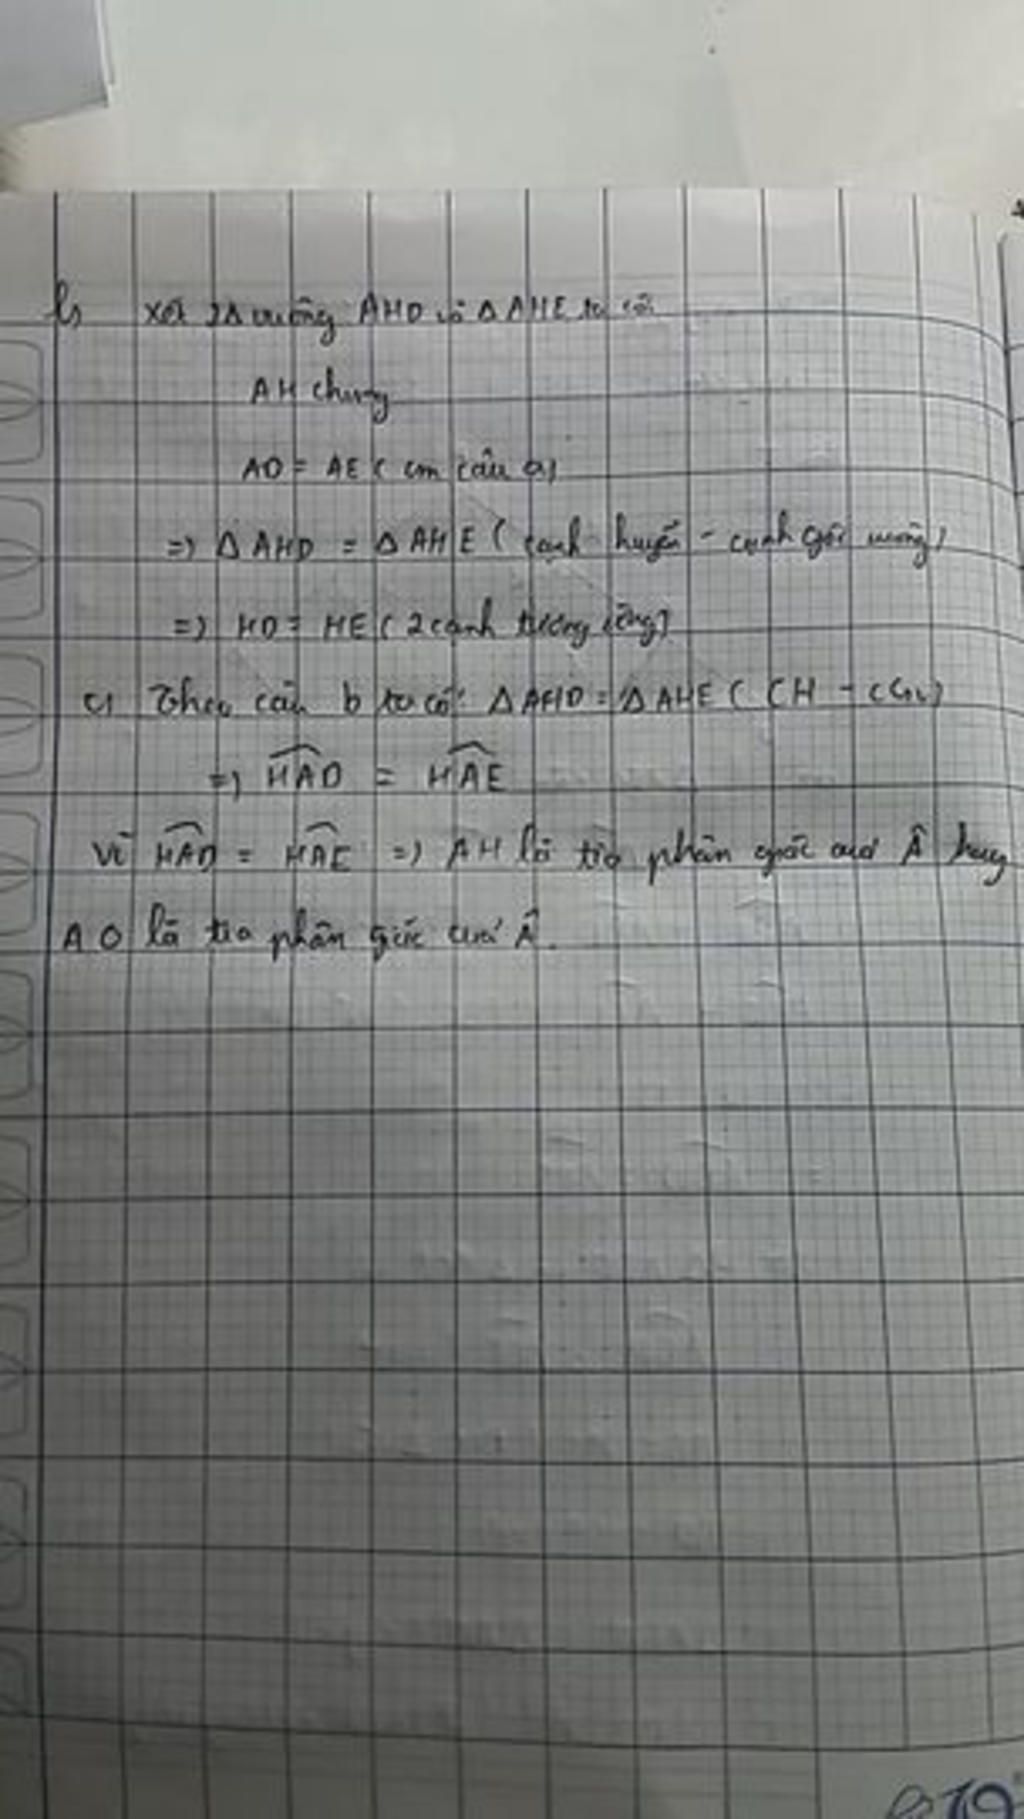 b) Xét 2Δ vuông AHD và Δ AHE ta có:
AH chung
AD = AE ( cm câu a)
=> Δ AHD = Δ AHE ( cạnh huyền - cạnh góc vuông)
=> HD = HE ( 2 cạnh tương ứng)
c) Theo câu b ta có: Δ AHD = Δ AHE ( CH - CGV)
=> HAD = HAE
Vì HAD = HAE => AH là tia phân giác của Â hay
AO là tia phân giác của Â.